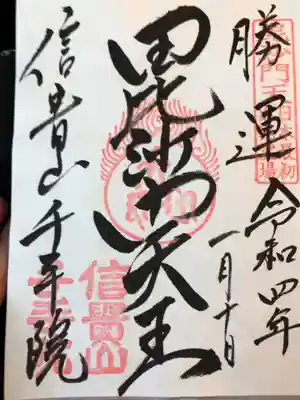 勝運
令和四年
一月十日
毘沙門天王
信貴山千手院
信貴山
千手院